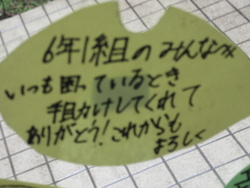 6年1組のみんなへ
いつも困っているとき
手助けしてくれて
ありがとう!これからも
よろしく